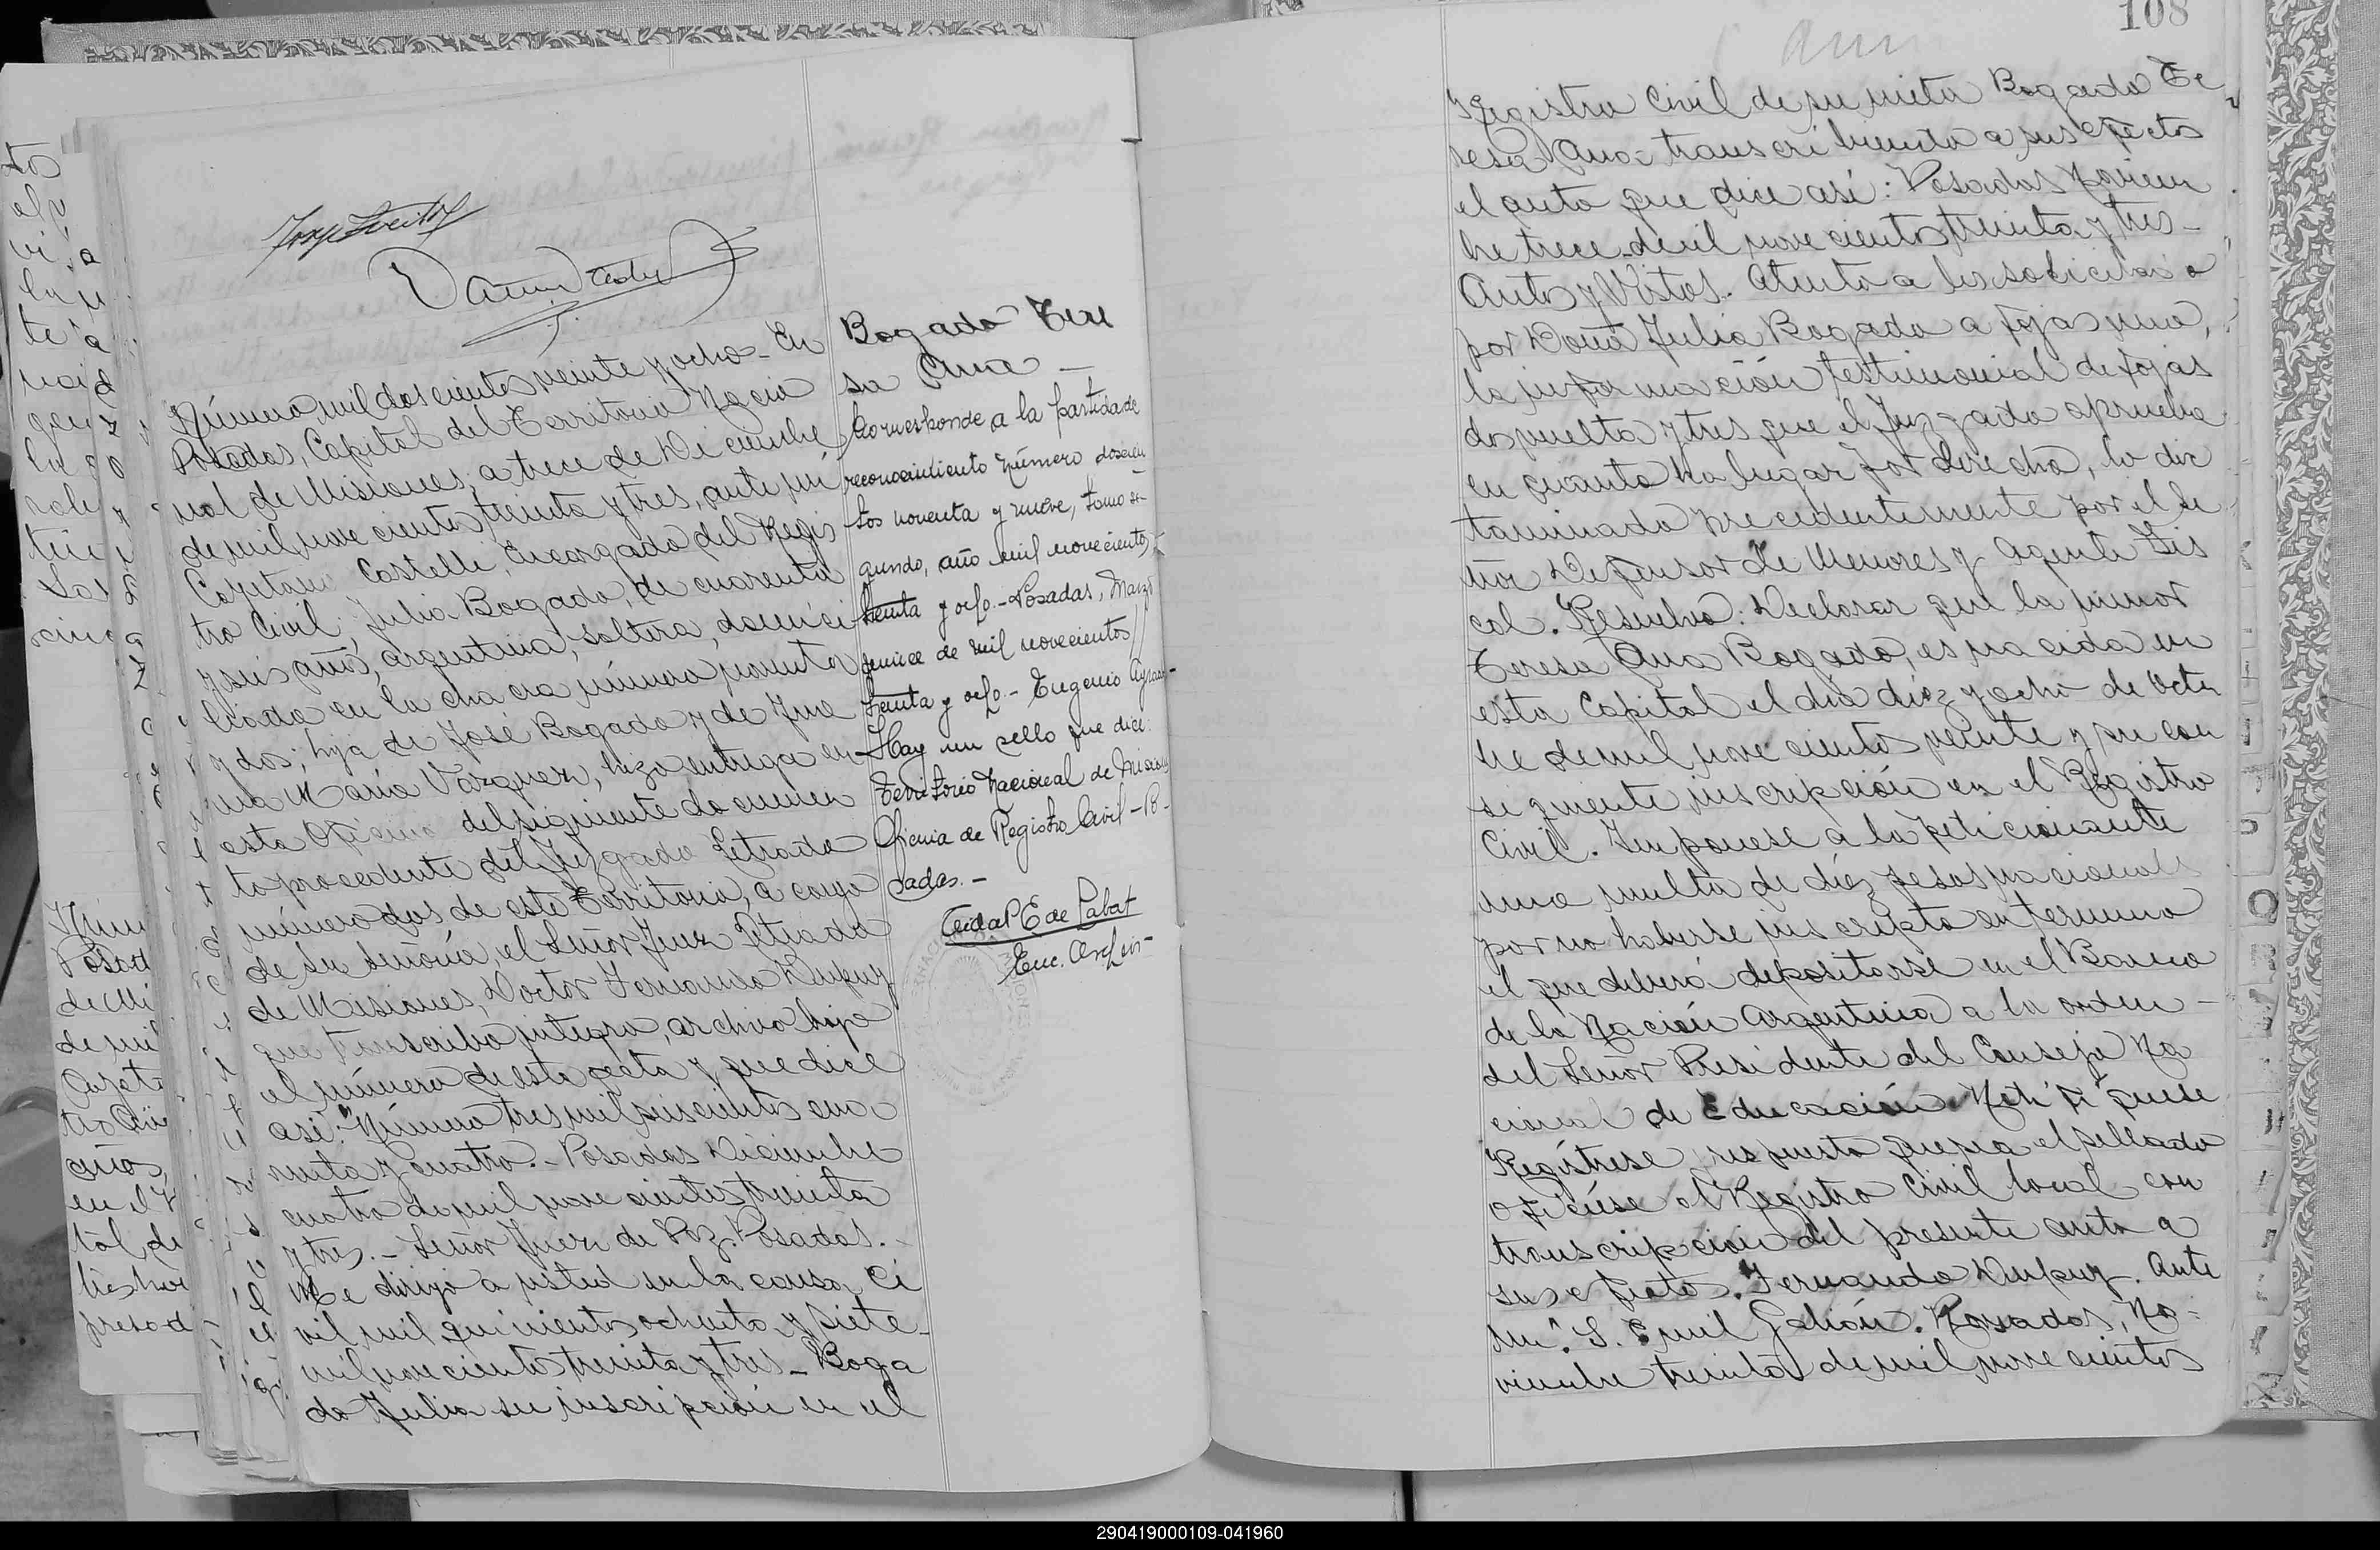 Número mil doscientos veinte y ocho - En
Posadas, Capital del Territorio Nacio
nal de Misiones, a trece de Diciembre
de mil novecientos treinta y tres, ante mí
Cayetano Castelli, Encargado del Regis
tro Civil, Julia Bogado, de cuarenta
y seis años, argentina, soltera, domici
liada en la chacra número noventa
y dos; hija de José Bogado y de Jua
na María Vazquez, hizo entrega en
esta Oficina del siguiente documen
to procedente del Juzgado Letrado
número dos de este Territorio, a cargo
de su señoría, el Señor Juez Letrado
de Misiones, Doctor Fernando Dupuy
que transcribo íntegro, archivo bajo
el número de esta acta y que dice
así: "Número tres mil seiscientos cua
renta y cuatro. - Posadas Diciembre
cuatro de mil novecientos treinta
y tres. - Señor Juez de Paz. Posadas. -
Me dirijo a usted en la causa Ci
vil mil quinientos ochenta y siete -
mil novecientos treinta y tres - Boga
do Julia su inscripción en el
Bogado Tere
sa Ana -
Corresponde a la partida de
reconocimiento número doscien
tos noventa y nueve, tomo se-
gundo, año mil novecientos
treinta y ocho. - Posadas, Marzo
quince de mil novecientos
treinta y ocho. - Eugenio
Hay un sello que dice:
Territorio Nacional de Misiones
Oficina de Registro Civil - Po-
sadas. -
de Labat
Enc.
108
Registro Civil de su nieta Bogado Te
resa Ana transcribiendo a sus efectos
el auto que dice así: Posadas Noviem
bre trece de mil novecientos treinta y tres -
Autos y Vistos. Atento a lo solicitado
por Doña Julia Bogado a fojas una,
la información testimonial de fojas
dos vuelta y tres que el Juzgado aprueba
en cuanto ha lugar por derecho, lo dic
taminado precedentemente por el Se
ñor Defensor de Menores y Agente Fis
cal. Resuelvo: Declarar que la menor
Teresa Ana Bogado, es nacida en
esta Capital el día diez y ocho de Octu
bre de mil novecientos veinte y su con
siguiente inscripción en el Registro
Civil. Imponese a la peticionante
una multa de diez pesos nacionales
por no haberse inscripto en termino
el que deberá depositarse en el Banco
de la Nación Argentina a la orden -
del Señor Presidente del Consejo Na
cional de Educación. Notifíquese
Regístrese, repuesto que sea el sellado
ofíciese al Registro Civil local con
transcripción del presente auto a
sus efectos. Fernando Dupuy. Ante
mí. S. Emil Galión. Posadas, No-
viembre treinta de mil novecientos
290419000109-041960